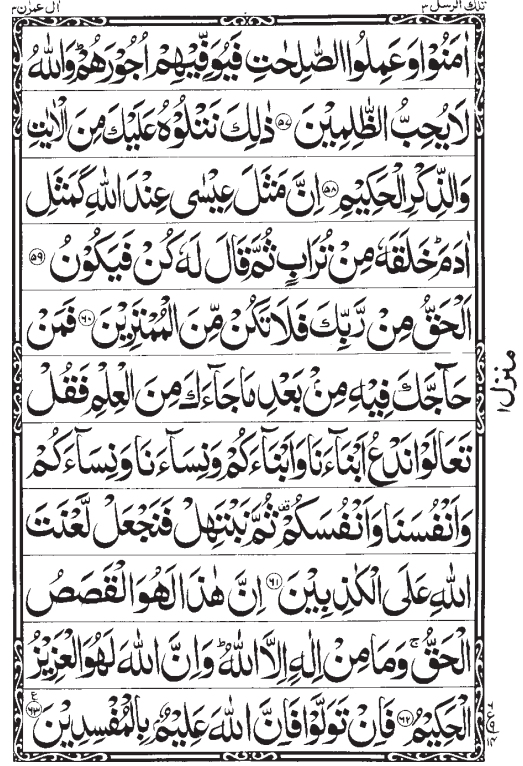 تلك الرسل ٣
اٰل عمرٰن ٣
اٰمَنُوْا وَعَمِلُوا الصّٰلِحٰتِ فَيُوَفِّيْهِمْ اُجُوْرَهُمْ ؕ وَاللّٰهُ
لَا يُحِبُّ الظّٰلِمِيْنَ ۝۵۷ ذٰلِكَ نَتْلُوْهُ عَلَيْكَ مِنَ الْاٰيٰتِ
وَالذِّكْرِ الْحَكِيْمِ ۝۵۸ اِنَّ مَثَلَ عِيْسٰى عِنْدَ اللّٰهِ كَمَثَلِ
اٰدَمَ ؕ خَلَقَهٗ مِنْ تُرَابٍ ثُمَّ قَالَ لَهٗ كُنْ فَيَكُوْنُ ۝۵۹
اَلْحَقُّ مِنْ رَّبِّكَ فَلَا تَكُنْ مِّنَ الْمُمْتَرِيْنَ ۝۶۰ فَمَنْ
حَآجَّكَ فِيْهِ مِنْۢ بَعْدِ مَا جَآءَكَ مِنَ الْعِلْمِ فَقُلْ
تَعَالَوْا نَدْعُ اَبْنَآءَنَا وَاَبْنَآءَكُمْ وَنِسَآءَنَا وَنِسَآءَكُمْ
وَاَنْفُسَنَا وَاَنْفُسَكُمْ ۫ ثُمَّ نَبْتَهِلْ فَنَجْعَلْ لَّعْنَتَ
اللّٰهِ عَلَى الْكٰذِبِيْنَ ۝۶۱ اِنَّ هٰذَا لَهُوَ الْقَصَصُ
الْحَقُّ ۚ وَمَا مِنْ اِلٰهٍ اِلَّا اللّٰهُ ؕ وَاِنَّ اللّٰهَ لَهُوَ الْعَزِيْزُ
الْحَكِيْمُ ۝۶۲ فَاِنْ تَوَلَّوْا فَاِنَّ اللّٰهَ عَلِيْمٌۢ بِالْمُفْسِدِيْنَ ۝۶۳ ع
منزل ۱